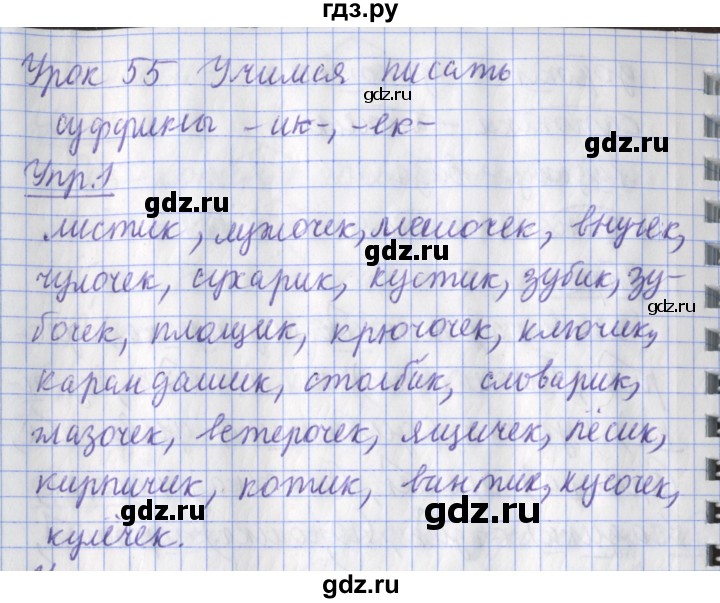 гдз.ру
Урок 55 Учимся писать
gdz.ru
суффиксы -ик-, -ек-
gdz.ru
Упр.1
gdz.ru
листик, лужочек, мешочек, внучек,
gdz.ru
чулочек, сухарик, кустик, зубик, зу-
gdz.ru
бочек, плащик, крючочек, ключик,
gdz.ru
карандашик, столбик, словарик,
gdz.ru
глазочек, ветерочек, ящичек, пёсик,
gdz.ru
кирпичик, котик, бантик, кусочек,
gdz.ru
gdz.ru
кулёчек.
gdz.ru
gdz.ru